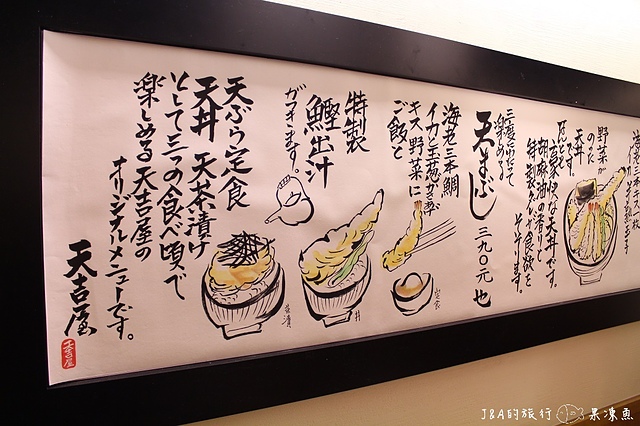 野菜
のった
天丼
です。
豪快な天丼です。
胡麻油の香りと
特製ダレが食欲を
そそります。
天まぶし 三九〇元也
三度に分けて
楽しめる
海老三本鯛
イカと玉葱かき揚
キス 野菜に
ご飯と
特製
鰹出汁
がつきます。
天ぷら定食
天丼 天茶漬け
として三つの食べ頃で
楽しめる天吉屋の
オリジナルメニューです。
天吉屋
天吉屋
定食
丼
茶漬
J&A的旅行 果凍魚